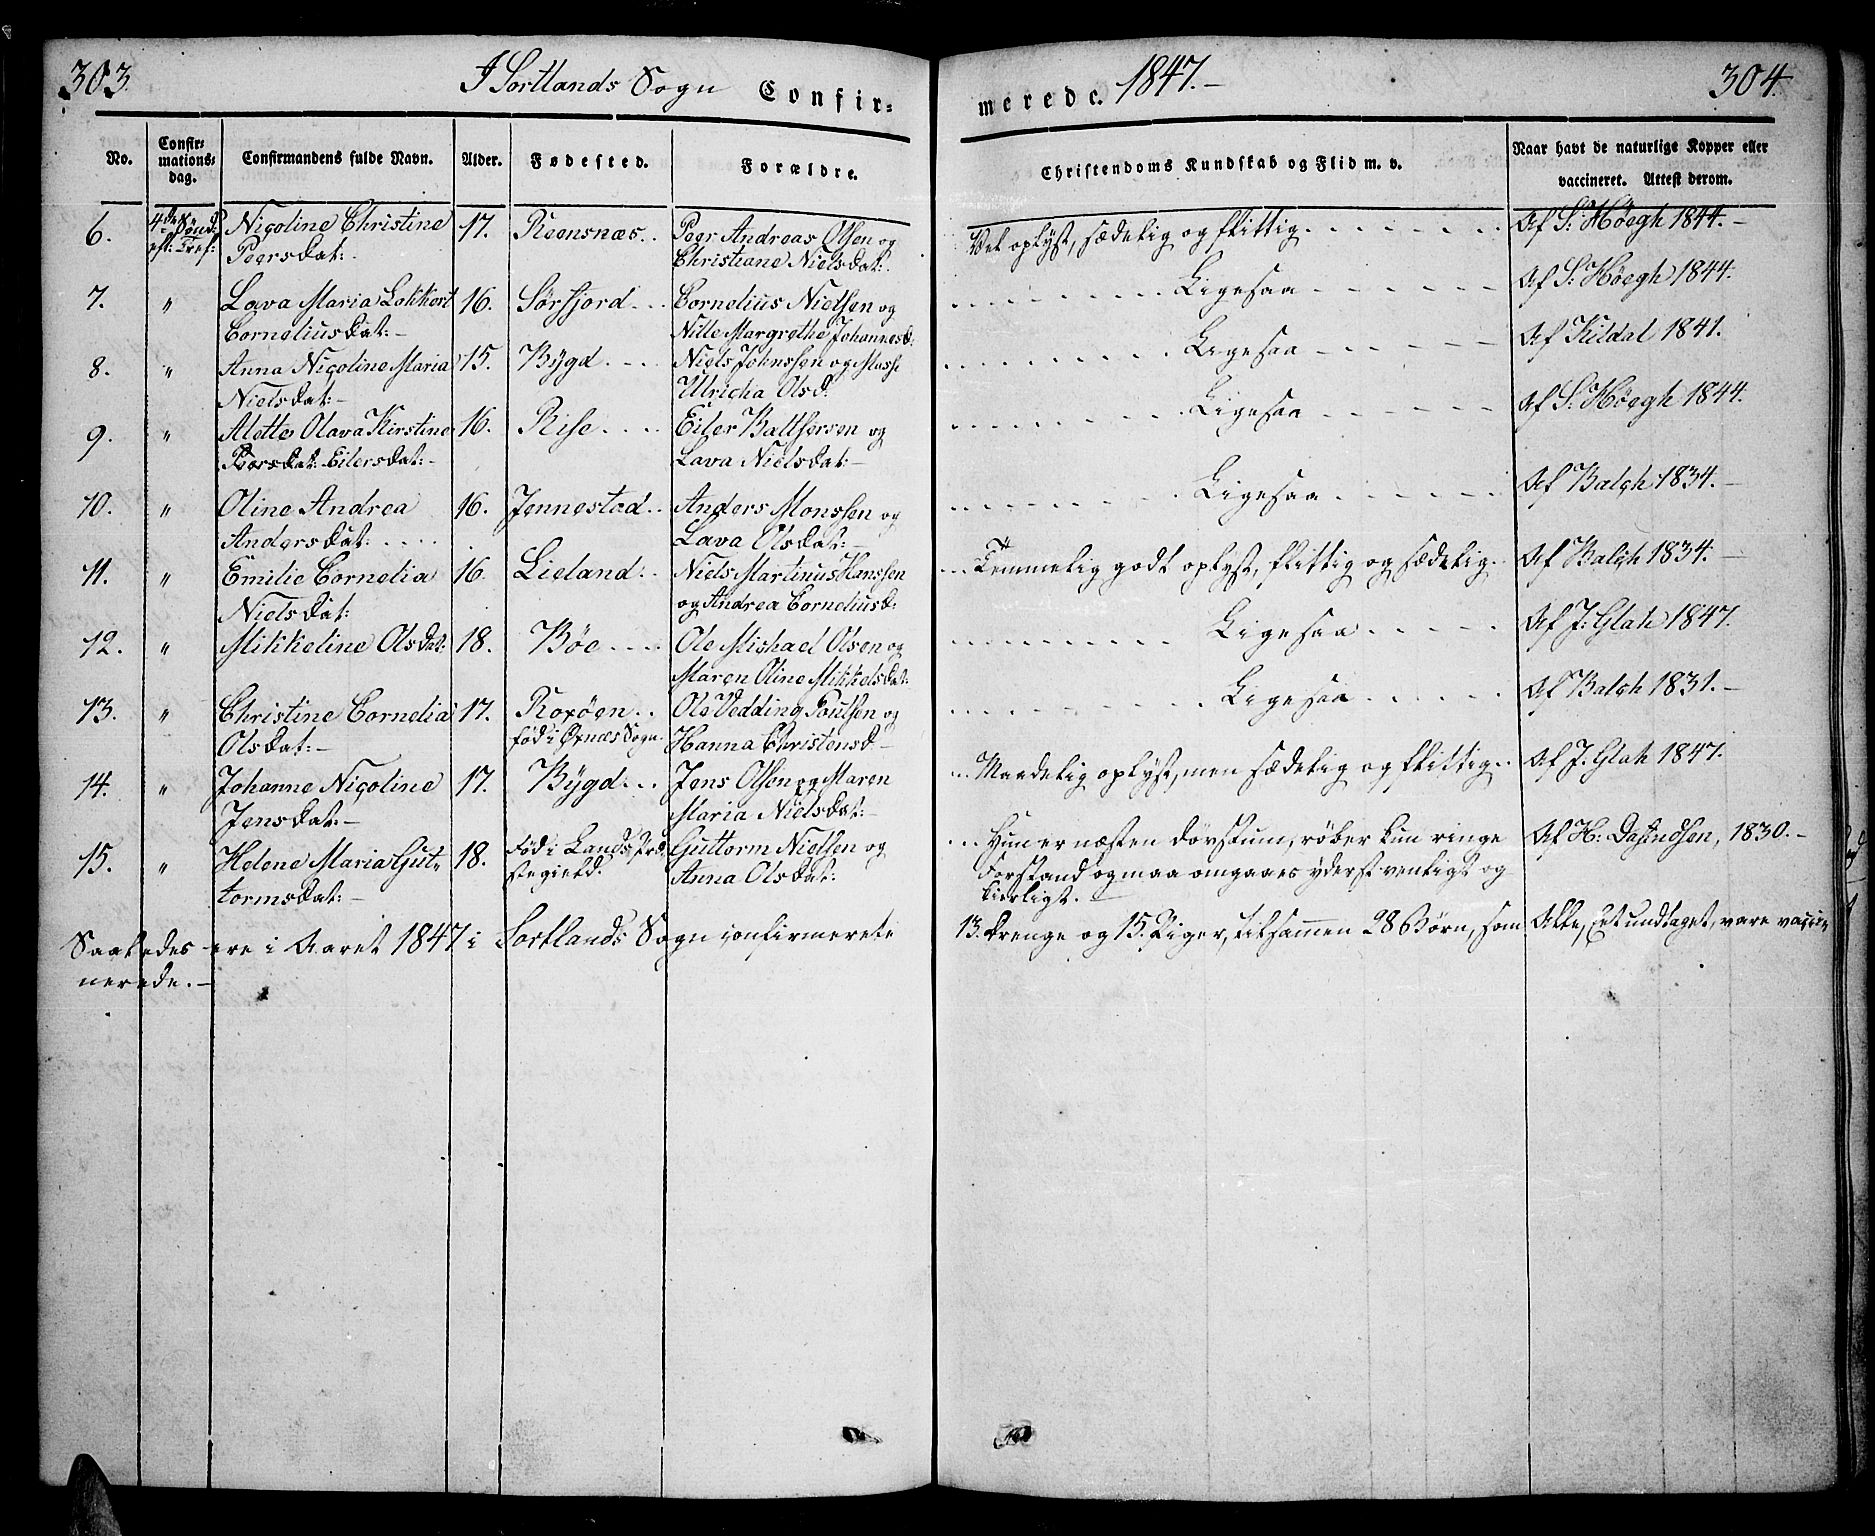 303.
I Sortlands Sogn
Confir-
meredc.
1847.-
304.
No.
Confir-
mations-
dag.
Confirmandens fulde Navn.
Alder.
Fødested.
Forældre.
Christendoms Kundskab og Flid m. v.
Naar havt de naturlige Kopper eller
vaccineret. Attest derom.
6. 4de Sønd: Nicoline Christine 17. Reensnæs.. Peer Andreas Olsen og Vel oplyst, sædelig og flittig. Af S: Høegh 1844.-
eft: Tref: Peersdat: Christiane Nielsdat:
7. " Lava Maria Lokkert 16. Sørfjord... Cornelius Nielsen og Ligesaa Af S: Høegh 1844.
Corneliusdat:- Nille Margrethe Johannesd:
8. " Anna Nicoline Maria 15. Bygd.... Niels Johnssen og Masse Ligesaa Af Kildal 1841.
Nielsdat:- Ulricha Olsd.
9. " Alette Olava Kirstine 16. Rise.... Eiler Balthersen og Ligesaa Af S: Høegh 1844.
Peersdat: Eilersdat:- Lava Nielsdat:-
10. " Oline Andrea 16. Jennestad.. Anders Monssen og Ligesaa Af Balch 1834.-
Andersdat:.... Lava Olsdat:-
11. " Emilie Cornelia 16. Lieland.. Niels Martinus Hanssen Temmelig godt oplyst, flittig og sædelig.. Af Balch 1834.-
Nielsdat: og Andrea Corneliusd:
12. " Mikkeline Olsdat: 18. Bøe.... Ole Mishael Olsen og Ligesaa Af J: Glah 1847.
Maren Oline Mikkelsdat:
13. " Christine Cornelia 17. Roxøen.. Ole Vedding Poulsen og Ligesaa Af Balch 1831.-
Olsdat:- fød i Øxnæs Sogn. Hanna Christensd-
14. " Johanne Nicoline 17. Bygd... Jens Olsen og Maren Maadelig oplyst, men sædelig og flittig.. Af J. Glah 1847.
Jensdat:- Maria Nielsdat:-
15. " Helene Maria Gut- 18. Fød i Lands Præ- Guttorm Nielsen og Hun er næsten døvstum, røber kun ringe Af H: 1830.-
tormsdat:- stegield. Anna Olsdat: Forstand og maa omgaaes yderst venligt og
kierligt.-
Saaledes ere i Aaret 1847 i Sortlands Sogn confirmerete 13. Drenge og 15. Piger, tilsammen 28 Børn, som Alle, Eet undtaget, vare vacci-
nerede.-